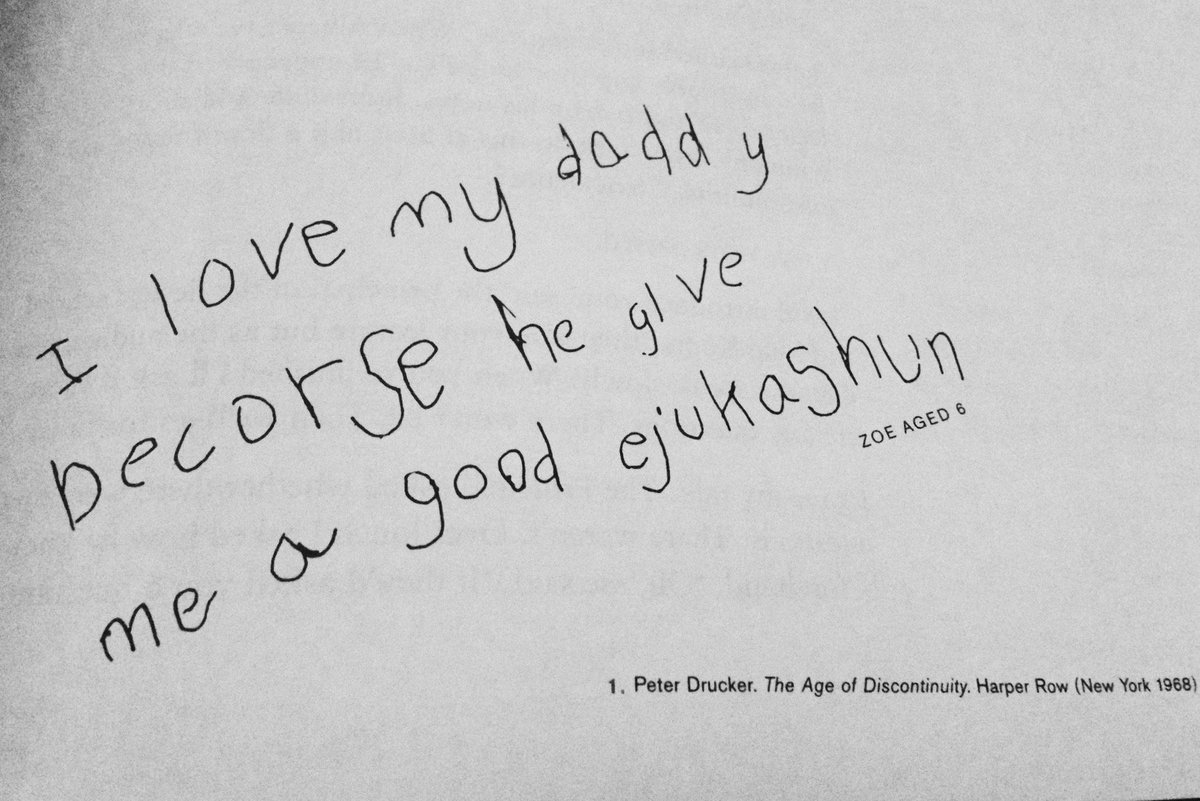 I love my daddy
becorse he give
me a good ejukashun
ZOE AGED 6
1. Peter Drucker. The Age of Discontinuity. Harper Row (New York 1968)